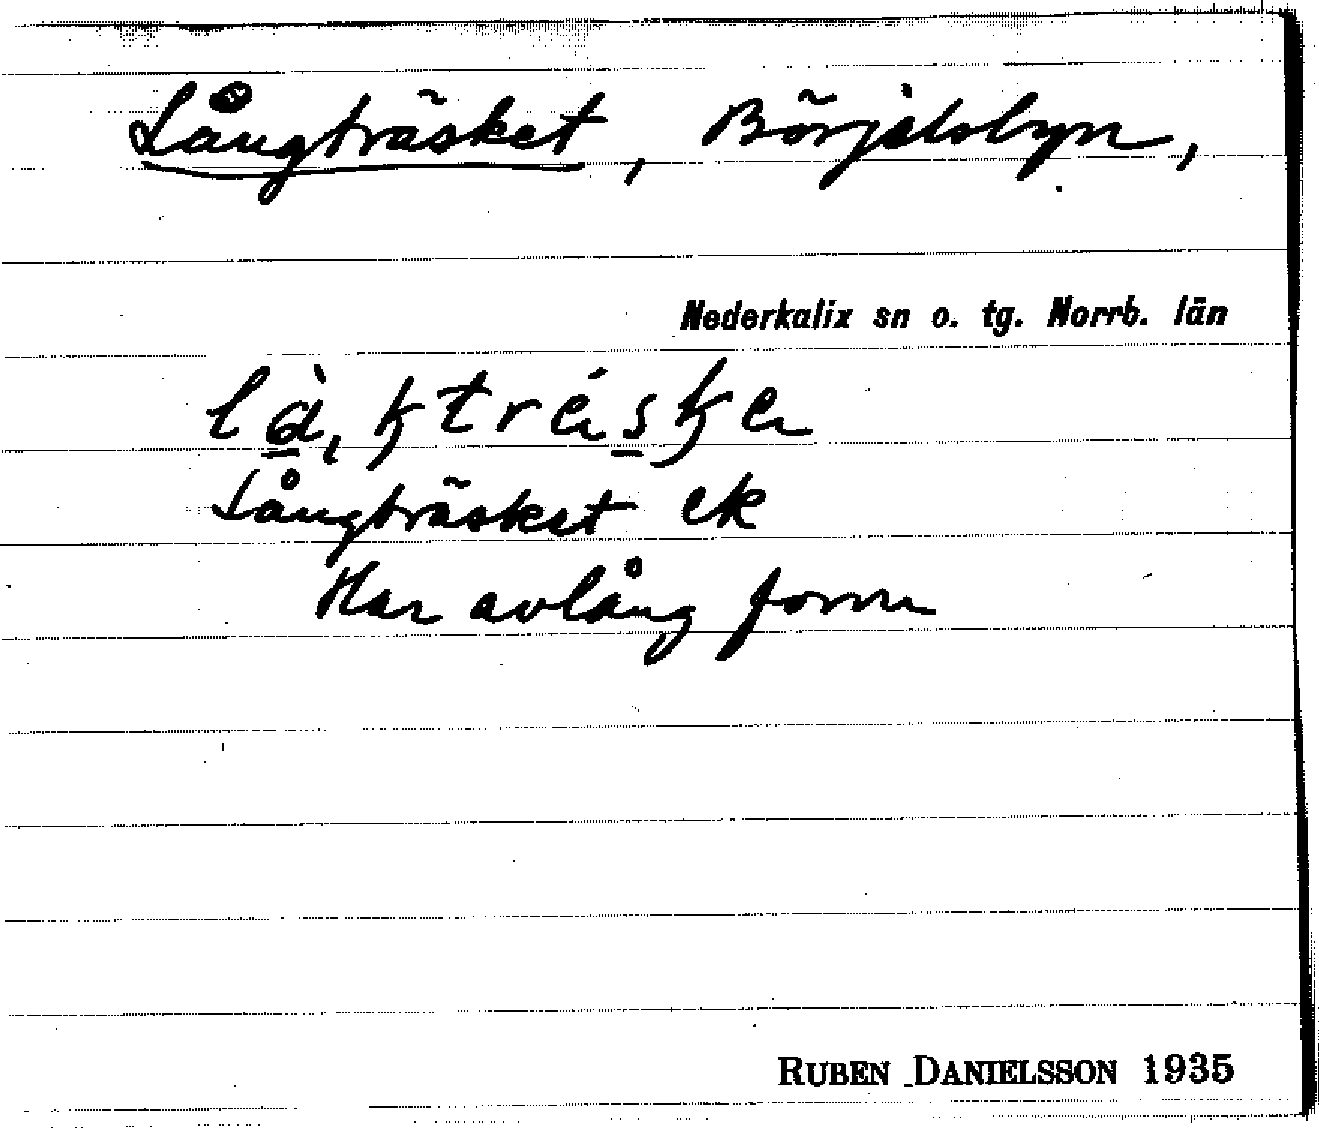 Långträsket, Börjelsbyn,
Nederkalix sn o. tg. Norrb. län
Långträsket ek
Har avlång form
RUBEN DANIELSSON 1935